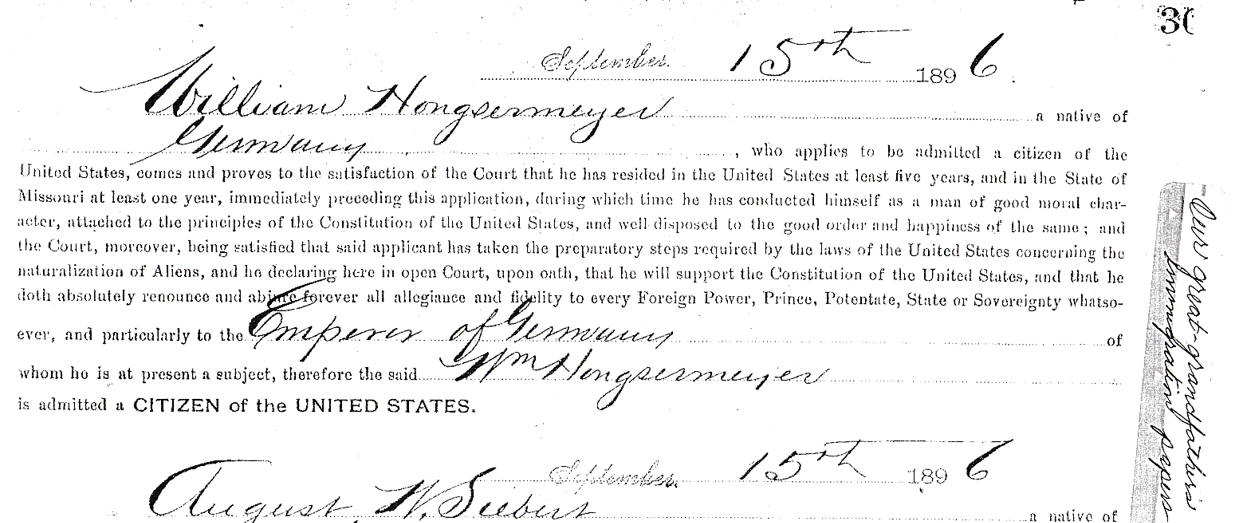 30
September 15th 1896.
William Hongsermeyer a native of
Germany, who applies to be admitted a citizen of the
United States, comes and proves to the satisfaction of the Court that he has resided in the United States at least five years, and in the State of
Missouri at least one year, immediately preceding this application, during which time he has conducted himself as a man of good moral char-
acter, attached to the principles of the Constitution of the United States, and well disposed to the good order and happiness of the same; and
the Court, moreover, being satisfied that said applicant has taken the preparatory steps required by the laws of the United States concerning the
naturalization of Aliens, and he declaring here in open Court, upon oath, that he will support the Constitution of the United States, and that he
doth absolutely renounce and abjure forever all allegiance and fidelity to every Foreign Power, Prince, Potentate, State or Sovereignty whatso-
ever, and particularly to the Emperor of Germany of
whom he is at present a subject, therefore the said Wm Hongsermeyer
is admitted a CITIZEN of the UNITED STATES.
September 15th 1896
August W. Siebert a native of
Our great-grandfather's
immigration papers